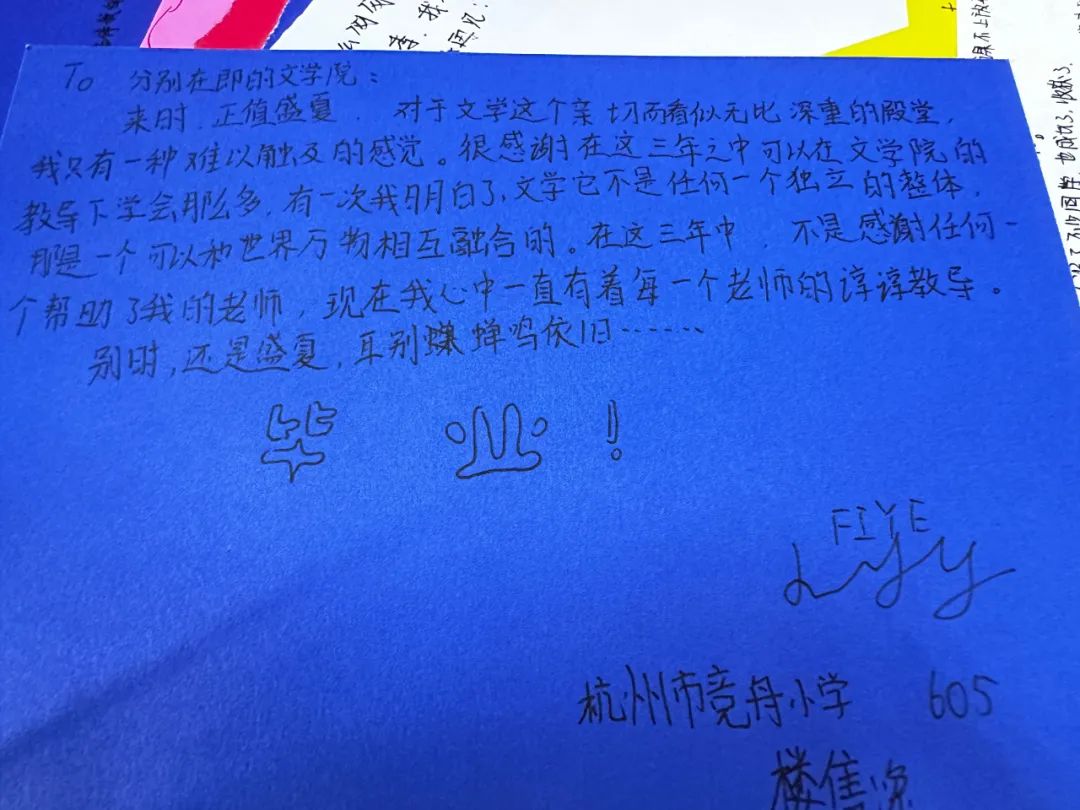 To 分别在即的文学院：
来时，正值盛夏，对于文学这个亲切而看似无比深重的殿堂，
我只有一种难以触及的感觉。很感谢在这三年之中可以在文学院的
教导下学会那么多，有一次我明白了，文学它不是任何一个独立的整体，
那是一个可以和世界万物相互融合的。在这三年中，不是感谢任何一
个帮助了我的老师，现在我心中一直有着每一个老师的谆谆教导。
别时，还是盛夏，耳别蝉鸣依旧……
毕 业！
FIYE
杭州市竞舟小学 605
楼隽